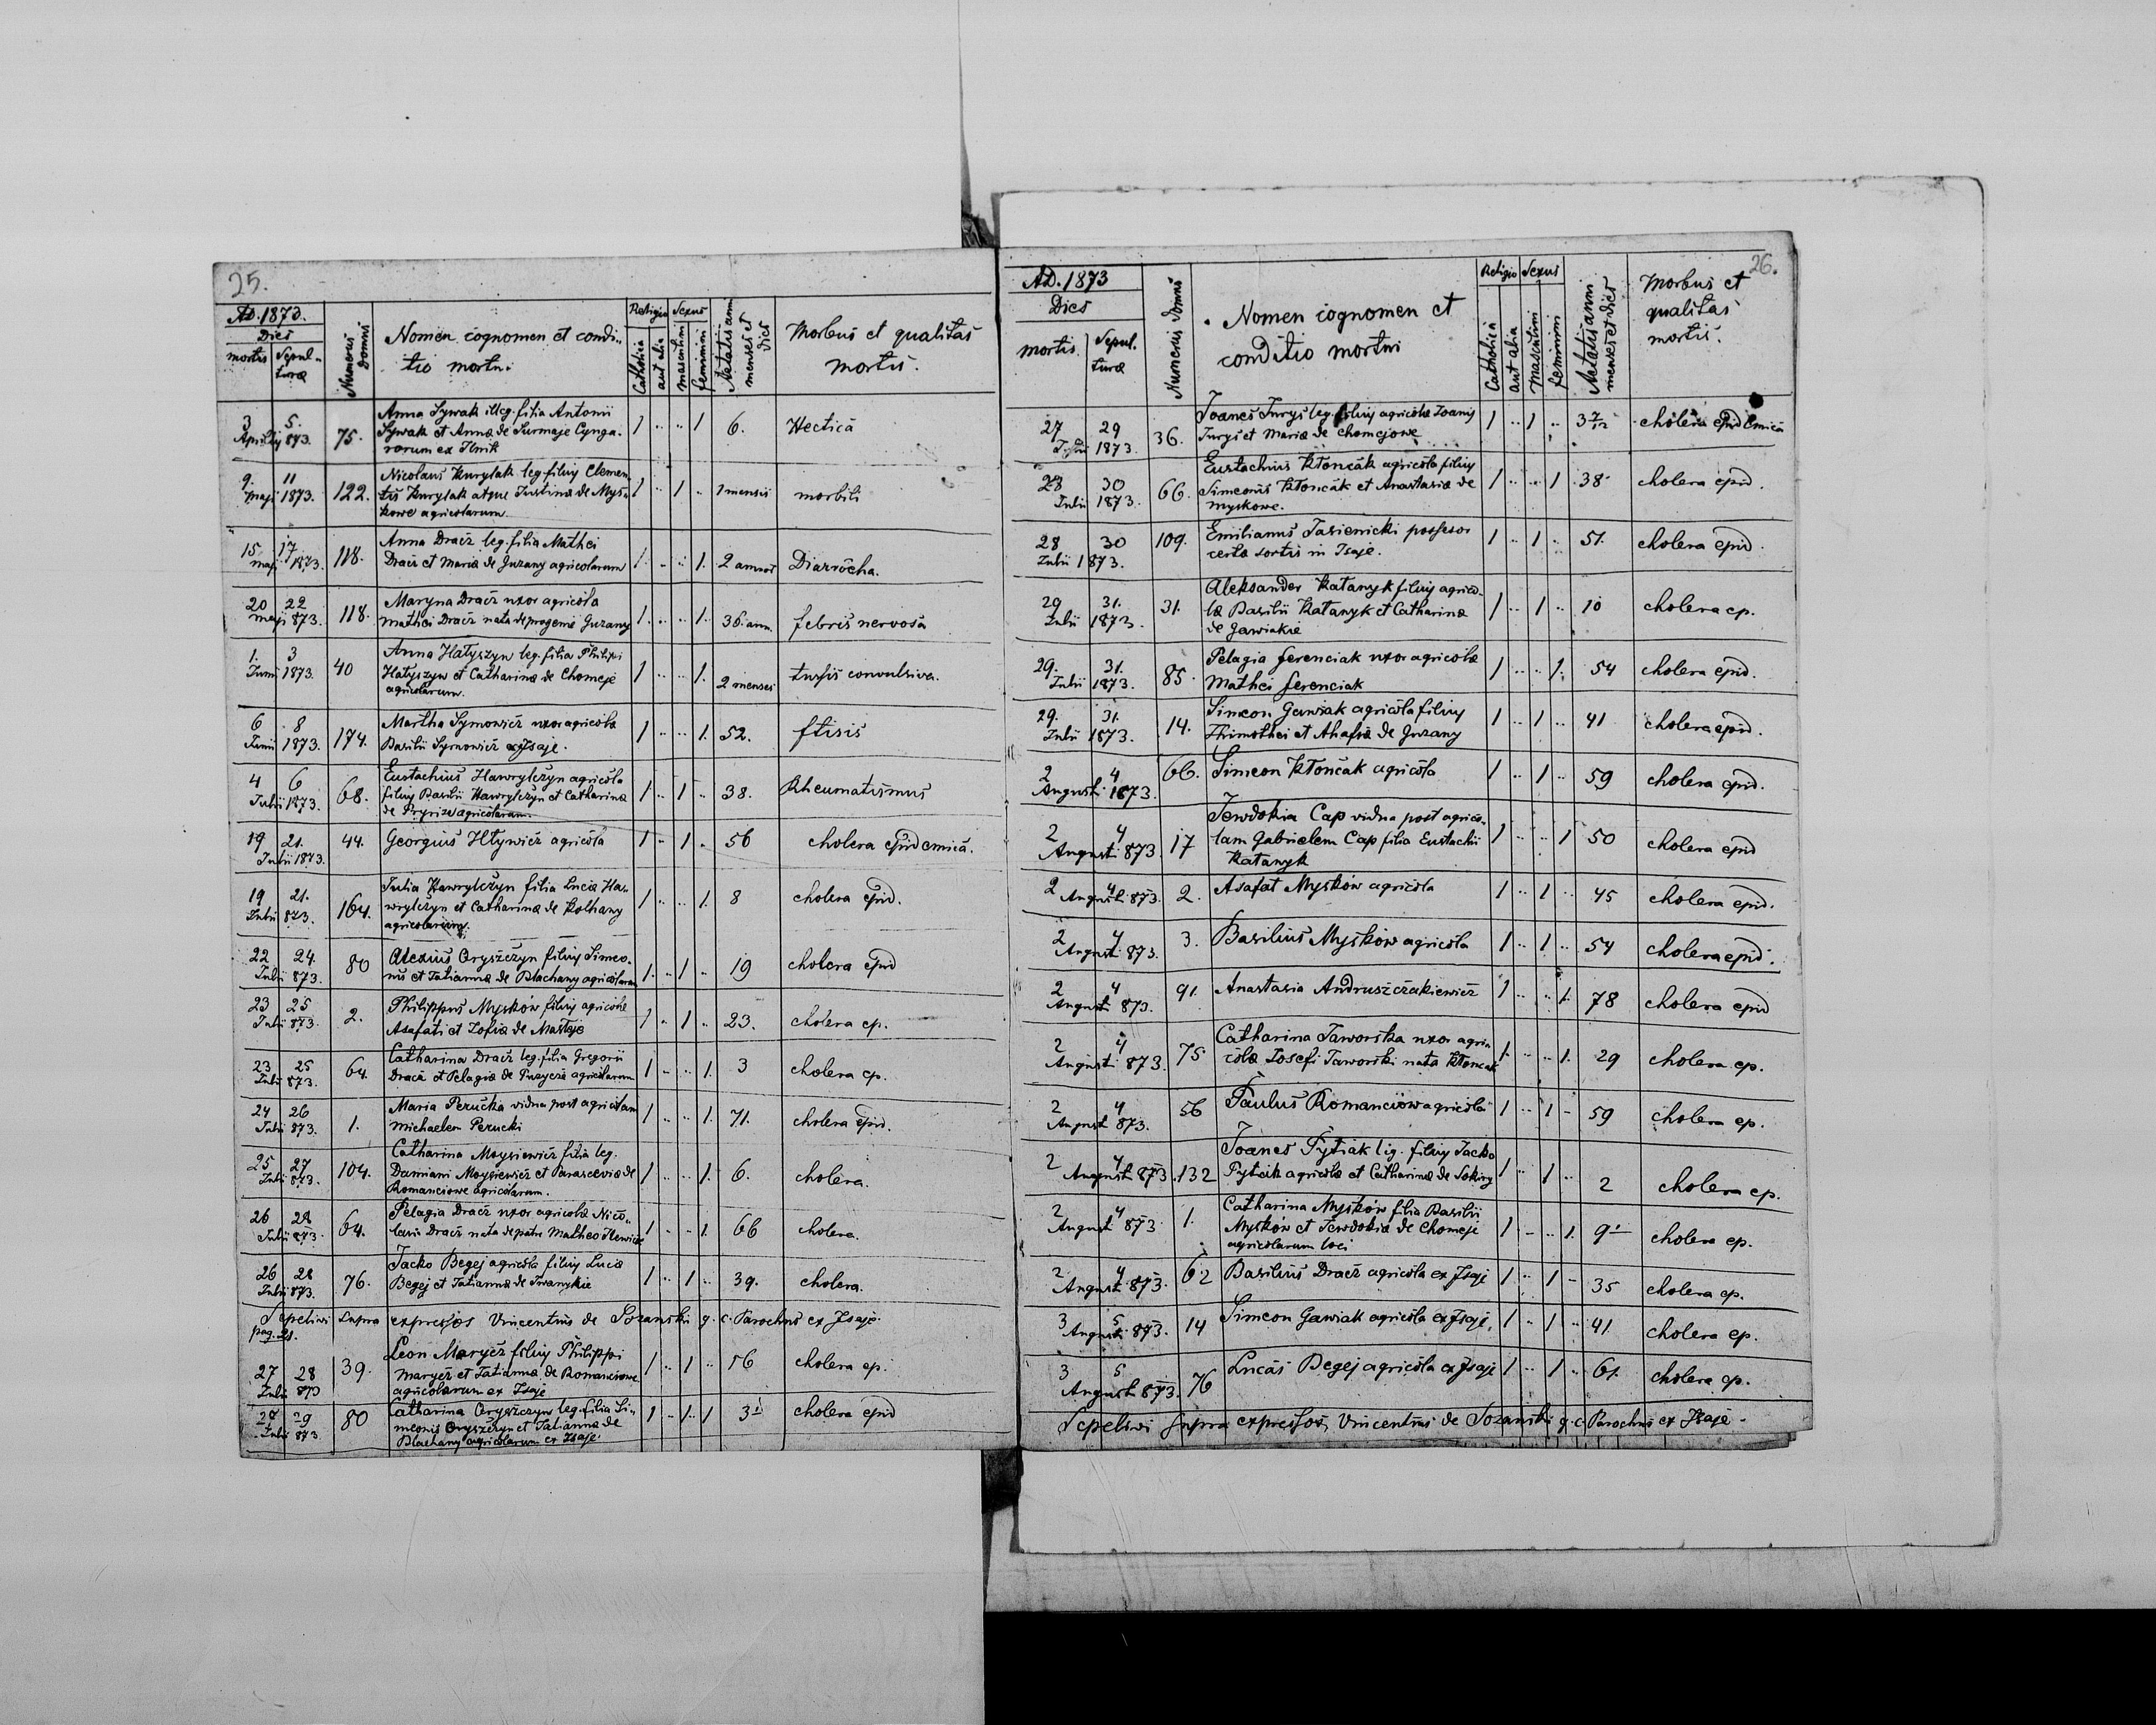 25.
AD. 1873.
Dies
mortis
Sepul-
turæ
Numerus domus
Nomen cognomen et condi-
tio mortui
Religio
Catholica
aut alia
Sexus
masculini
feminini
Aetatis anni
menses et
dies
Morbus et qualitas
mortis.
3 5. 75. Anna Sywak illeg. filia Antonii 1 .. .. 1 6. Hectica
Aprilis 873. Sywak et Anna de Surmaje Cynga-
rorum ex Ilnik
9. 11 122. Nicolaus Kurylak leg. filius Clemen- 1 .. 1 .. 1 mensis morbili
maji 1873. tis Kurylak atque Justina de Mys-
kowe agricolarum
15. 17 118. Anna Dracz leg. filia Mathei 1. .. .. 1. 2 annos Diarröcha.
maji 1873. Dracz et Maria de Guzany agricolarum
20 22 118. Maryna Dracz uxor agricola 1. .. .. 1. 36. ann. febris nervosa
maji 873. Mathei Dracz nata de progenie Guzany
1. 3 40 Anna Hatyszyn leg. filia Philipi 1 .. .. 1. 2 menses tussis convulsiva.
Junii 1873. Hatyszyn et Catharina de Chomeje
agricolarum.
6 8 174. Martha Symowicz uxor agricola 1 .. .. 1. 52. ftisis
Junii 1873. Basilii Symowicz ex Isaje.
4 6 68. Eustachius Hawrylczyn agricola 1 .. 1 .. 38. Rheumatismus
Julii 1873. filius Basilii Hawrylczyn et Catharina
de agricolarum.
19 21. 44. Georgius Hlywicz agricola 1 .. 1 .. 56 cholera epidemica.
Julii 1873.
19 21. 164. Julia Hawrylczyn filia Luca Ha- 1 .. .. 1. 8 cholera epid.
Julii 873. wrylczyn et Catharina de Kolhany
agricolarum.
22 24. 80 Alexius Oryszczyn filius Simeo- 1. .. 1 .. 19 cholera epid
Julii 873. nis et Tatianna de Blachany agricolarum
23 25 2. Philippus Myskow filius agricola 1 .. 1 .. 23. cholera ep.
Julii 873. Asafati et Zofia de Matteje
23 25 64. Catharina Dracz leg. filia Gregorii 1 .. .. 1. 3 cholera ep.
Julii 873. Dracz et Pelagia de agricolarum
24 26 1. Maria Perucka vidua post agricolam 1 .. .. 1. 71. cholera epid.
Julii 873. Michaelem Perucki
25 27 104. Catharina Moysiewicz filia leg. 1 .. .. 1. 6. cholera.
Julii 873. Damiani Moysiewicz et Parascevia de
Romanciowe agricolarum.
26 28 64. Pelagia Dracz uxor agricola Nico- 1 .. .. 1. 66 cholera.
Julii 873. lai Dracz nata de patre Matheo Ilewicz
26 28 76. Jacko Begej agricola filius Luca 1 .. 1 .. 39. cholera.
Julii 873. Begej et Tatianna de Iwanykie
Sepelivi supra expressos Vincentius de Sozanski g. c. Parochus ex Isaje.
pag. 21.
27 28 39. Leon Marycz filius Philippi 1 .. 1 .. 56 cholera ep.
Julii 873 Marycz et Tatianna de Romanciowe
agricolarum ex Isaje
27 29 80 Catharina Oryszczyn leg. filia Si- 1 .. 1. 1 3 cholera epid
Julii 873 meonis Oryszczyn et Tatianna de
Blachany agricolarum ex Isaje.
26.
AD. 1873
Dies
mortis.
Sepul-
turæ
Numerus domus
Nomen cognomen et
conditio mortui
Religio
Catholica
aut alia
Sexus
masculini
feminini
Aetatis anni
menses et dies
Morbus et
qualitas
mortis.
27 29 36. Joanes Jurys leg. filius agricola Joanis 1 .. 1 .. 3 7/12 cholera epidemica
Julii 1873 Jurys et Maria de Chomejowe
28 30 66. Eustachius Ktonczak agricola filius 1 .. .. 1 38 cholera epid.
Julii 1873. Simeonis Ktonczak et Anastasia de
Myskowe.
28 30 109. Emilianus Jasienicki possesor 1 .. 1 .. 51. cholera epid.
Julii 1873. certa sortis in Isaje.
29 31. 31. Aleksander Katanyk filius agrico- 1 .. 1 .. 10 cholera ep.
Julii 1873. la Basilii Katanyk et Catharina
de Gawiakie
29. 31. 85. Pelagia ferenciak uxor agricola 1 .. .. 1. 54 cholera epid.
Julii 1873. Mathei ferenciak
29. 31. 14. Simeon Gawiak agricola filius 1 .. 1 .. 41 cholera epid.
Julii 1873. Thimothei et Ahafia de Guzany
2 4 66. Simeon Ktonczak agricola 1 .. 1 .. 59 cholera epid.
Augusti 1873.
2 4 17 Jewdokia Cap vidua post agrico- 1 .. .. 1 50 cholera epid
Augusti 873. lam Gabrielem Cap filia Eustachii
Katanyk
2 4 2. Asafat Myskow agricola 1 .. 1 .. 45 cholera epid.
Augusti 873.
2 4 3. Basilius Myskow agricola 1 .. 1 .. 54 cholera epid.
Augusti 873.
2 4 91. Anastasia Andruszczakiewicz 1 .. .. 1. 78 cholera epid
Augusti 873.
2 4 75 Catharina Jaworska uxor agri- 1. .. .. 1. 29 cholera ep.
Augusti 873. cola Josefi Jaworski nata Ktonczak
2 4 56 Paulus Romanciow agricola 1 .. 1 - 59 cholera ep.
Augusti 873.
2 4 132 Joanes Fytiak lig. filius Jacko 1 .. 1 .. 2 cholera ep.
Augusti 873. Fytiak agricola et Catharina de Sokiry
2 4 1. Catharina Myskow filia Basilii 1 .. .. 1. 9 cholera ep.
Augusti 873 Myskow et Jewdokia de Chomeje
agricolarum loci
2 4 62 Basilius Dracz agricola ex Isaje 1 .. 1 - 35 cholera ep.
Augusti 873.
3 5 14 Simeon Gawiak agricola ex Isaje. 1 .. 1 .. 41 cholera ep.
Augusti 873.
3 5 76 Lucas Begej agricola ex Isaje 1 .. 1 .. 61. cholera ep.
Augusti 873.
Sepelivi supra expressos, Vincentius de Sozanski g. c. Parochus ex Isaje.